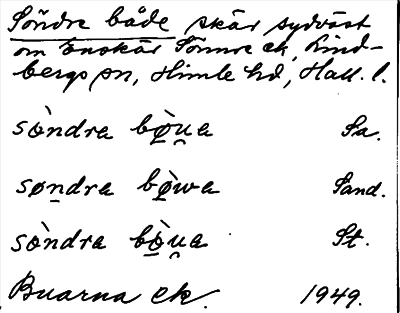 Söndra både skär sydväst
om Enskär Sönnre ek, Lind-
bergs sn, Himle hd, Hall. l.
sòndra bò̲u̯a Sa.
søn̲dra bø̲̀wa Sand.
sòndra bò̲u̯a St.
Buarna ek. 1949.